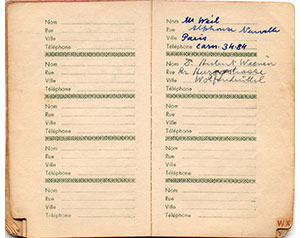 Nom
Rue
Ville
Téléphone
Nom
Rue
Ville
Téléphone
Nom
Rue
Ville
Téléphone
Nom
Rue
Ville
Téléphone
Nom
Rue
Ville
Téléphone
Nom Mr Weil
Rue Alphonse
Ville Paris
Téléphone Carn. 34-84
Nom D. Herbert
Rue
Ville Wolfenbüttel
Téléphone
Nom
Rue
Ville
Téléphone
Nom
Rue
Ville
Téléphone
Nom
Rue
Ville
Téléphone